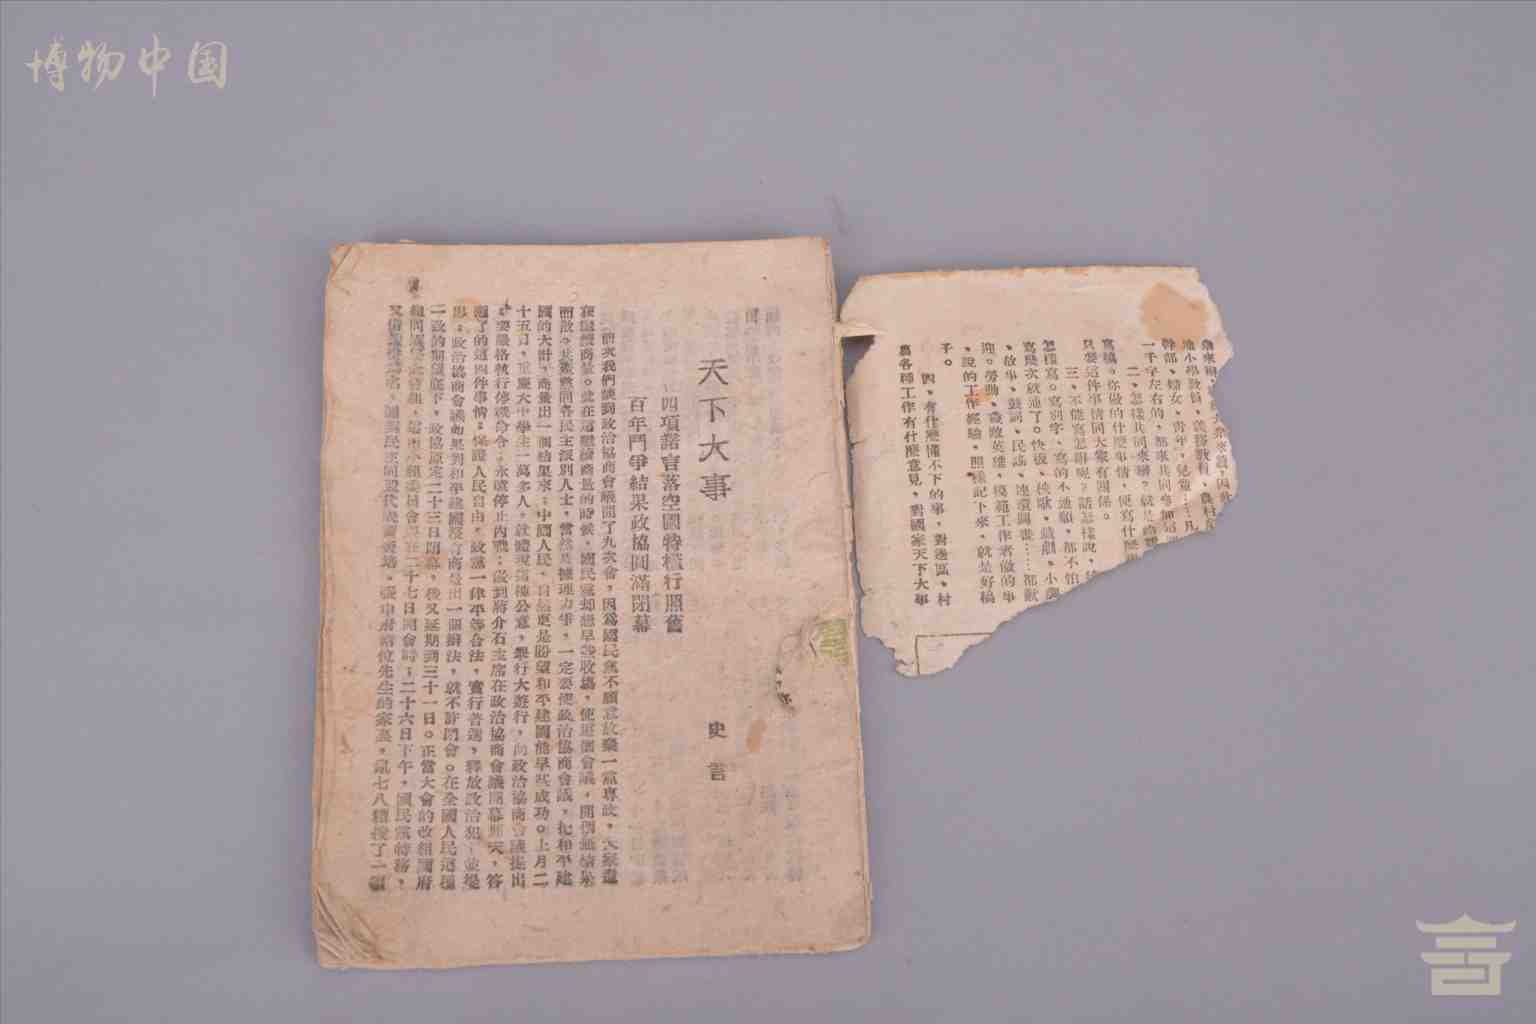 博物中国
天下大事
史言
四項諾言落空國特橫行照舊
百年鬥爭結果政協圓滿閉幕
前次我們談到政治協商會議開了九次會，因為國民黨不願意放棄一黨專政，大家還
在繼續商量。就在這繼續商量的時候，國民黨却想早些收場，使這個會議，開個無結果
而散。共產黨同各民主派別人士，當然是據理力爭，一定要使政治協商會議，把和平建
國的大計，商量出一個結果來；中國人民，自然更是盼望和平建國能早些成功。上月二
十五日，重慶大中學生一萬多人，就體現這種公意，舉行大遊行，向政治協商會議提出
，要嚴格執行停戰命令，永遠停止內戰；做到蔣介石主席在政治協商會議開幕那天，答
應了的這四件事情：保證人民自由，政黨一律平等合法，實行普選，釋放政治犯；並提
出：政治協商會議如果對和平建國沒有商量出一個辦法，就不許閉會。在全國人民這種
一致的期望底下，政協原定二十三日閉幕，後又延期到三十一日。正當大會的改組國府
二十七日開會時；二十六日下午，國民黨特務，
先生的家裏，亂七八糟搜了一
幹部、婦女、青年、兒童……凡
一千字左右的，都來共同參加
二、怎樣共同來辦？就是
寫稿。你做的什麼事情，便寫什麼
只要這件事情同大家有關係。
三、不能寫怎辦呢？話怎樣說，
怎樣寫。寫別字，寫的不通順，都不怕
寫幾次就通了。快板、秧歌、戲劇、小
、故事、鼓詞、民謠、連環圖畫……都歡
迎。勞動、殺敵英雄，模範工作者做的事
，說的工作經驗，照樣記下來，就是好稿
子。
四、有什麼懂不下的事，對邊區、村
裏各種工作有什麼意見，對國家天下大事